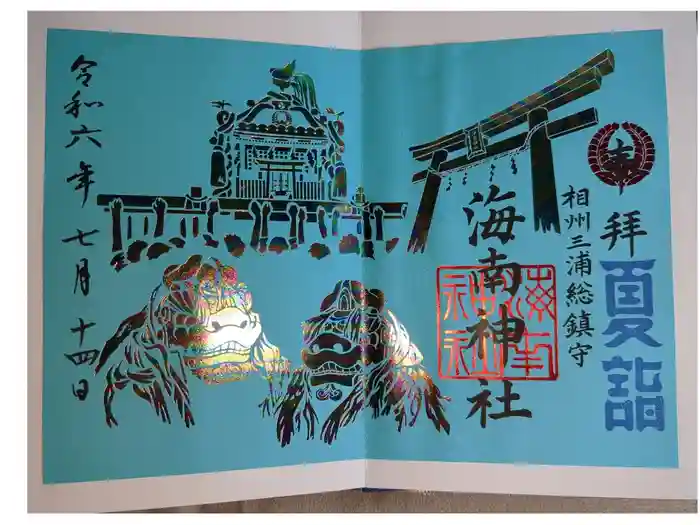 奉拝
夏詣
相州三浦総鎮守
海南神社
海南神社
令和六年 七月 十四日